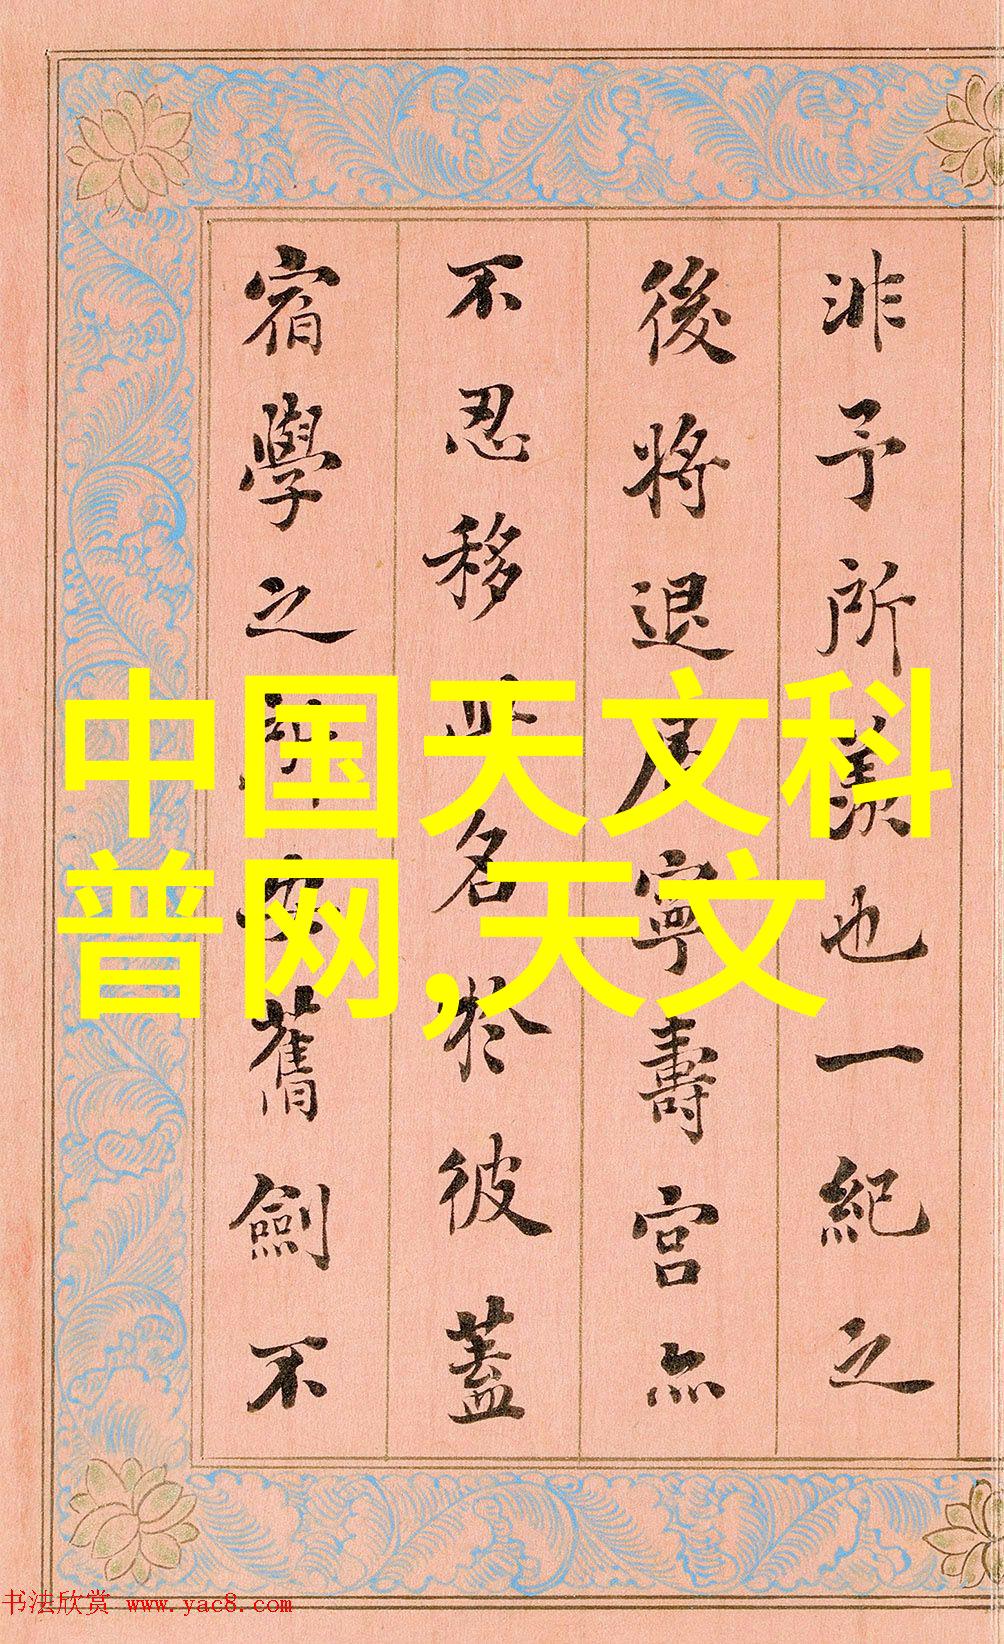 非予所羨也一紀之
後將退居寧壽宮亦
不忍移此名於彼蓋
宿學之所安舊劍不
中国天文科
普网,天文
书法欣赏 www.yac8.com